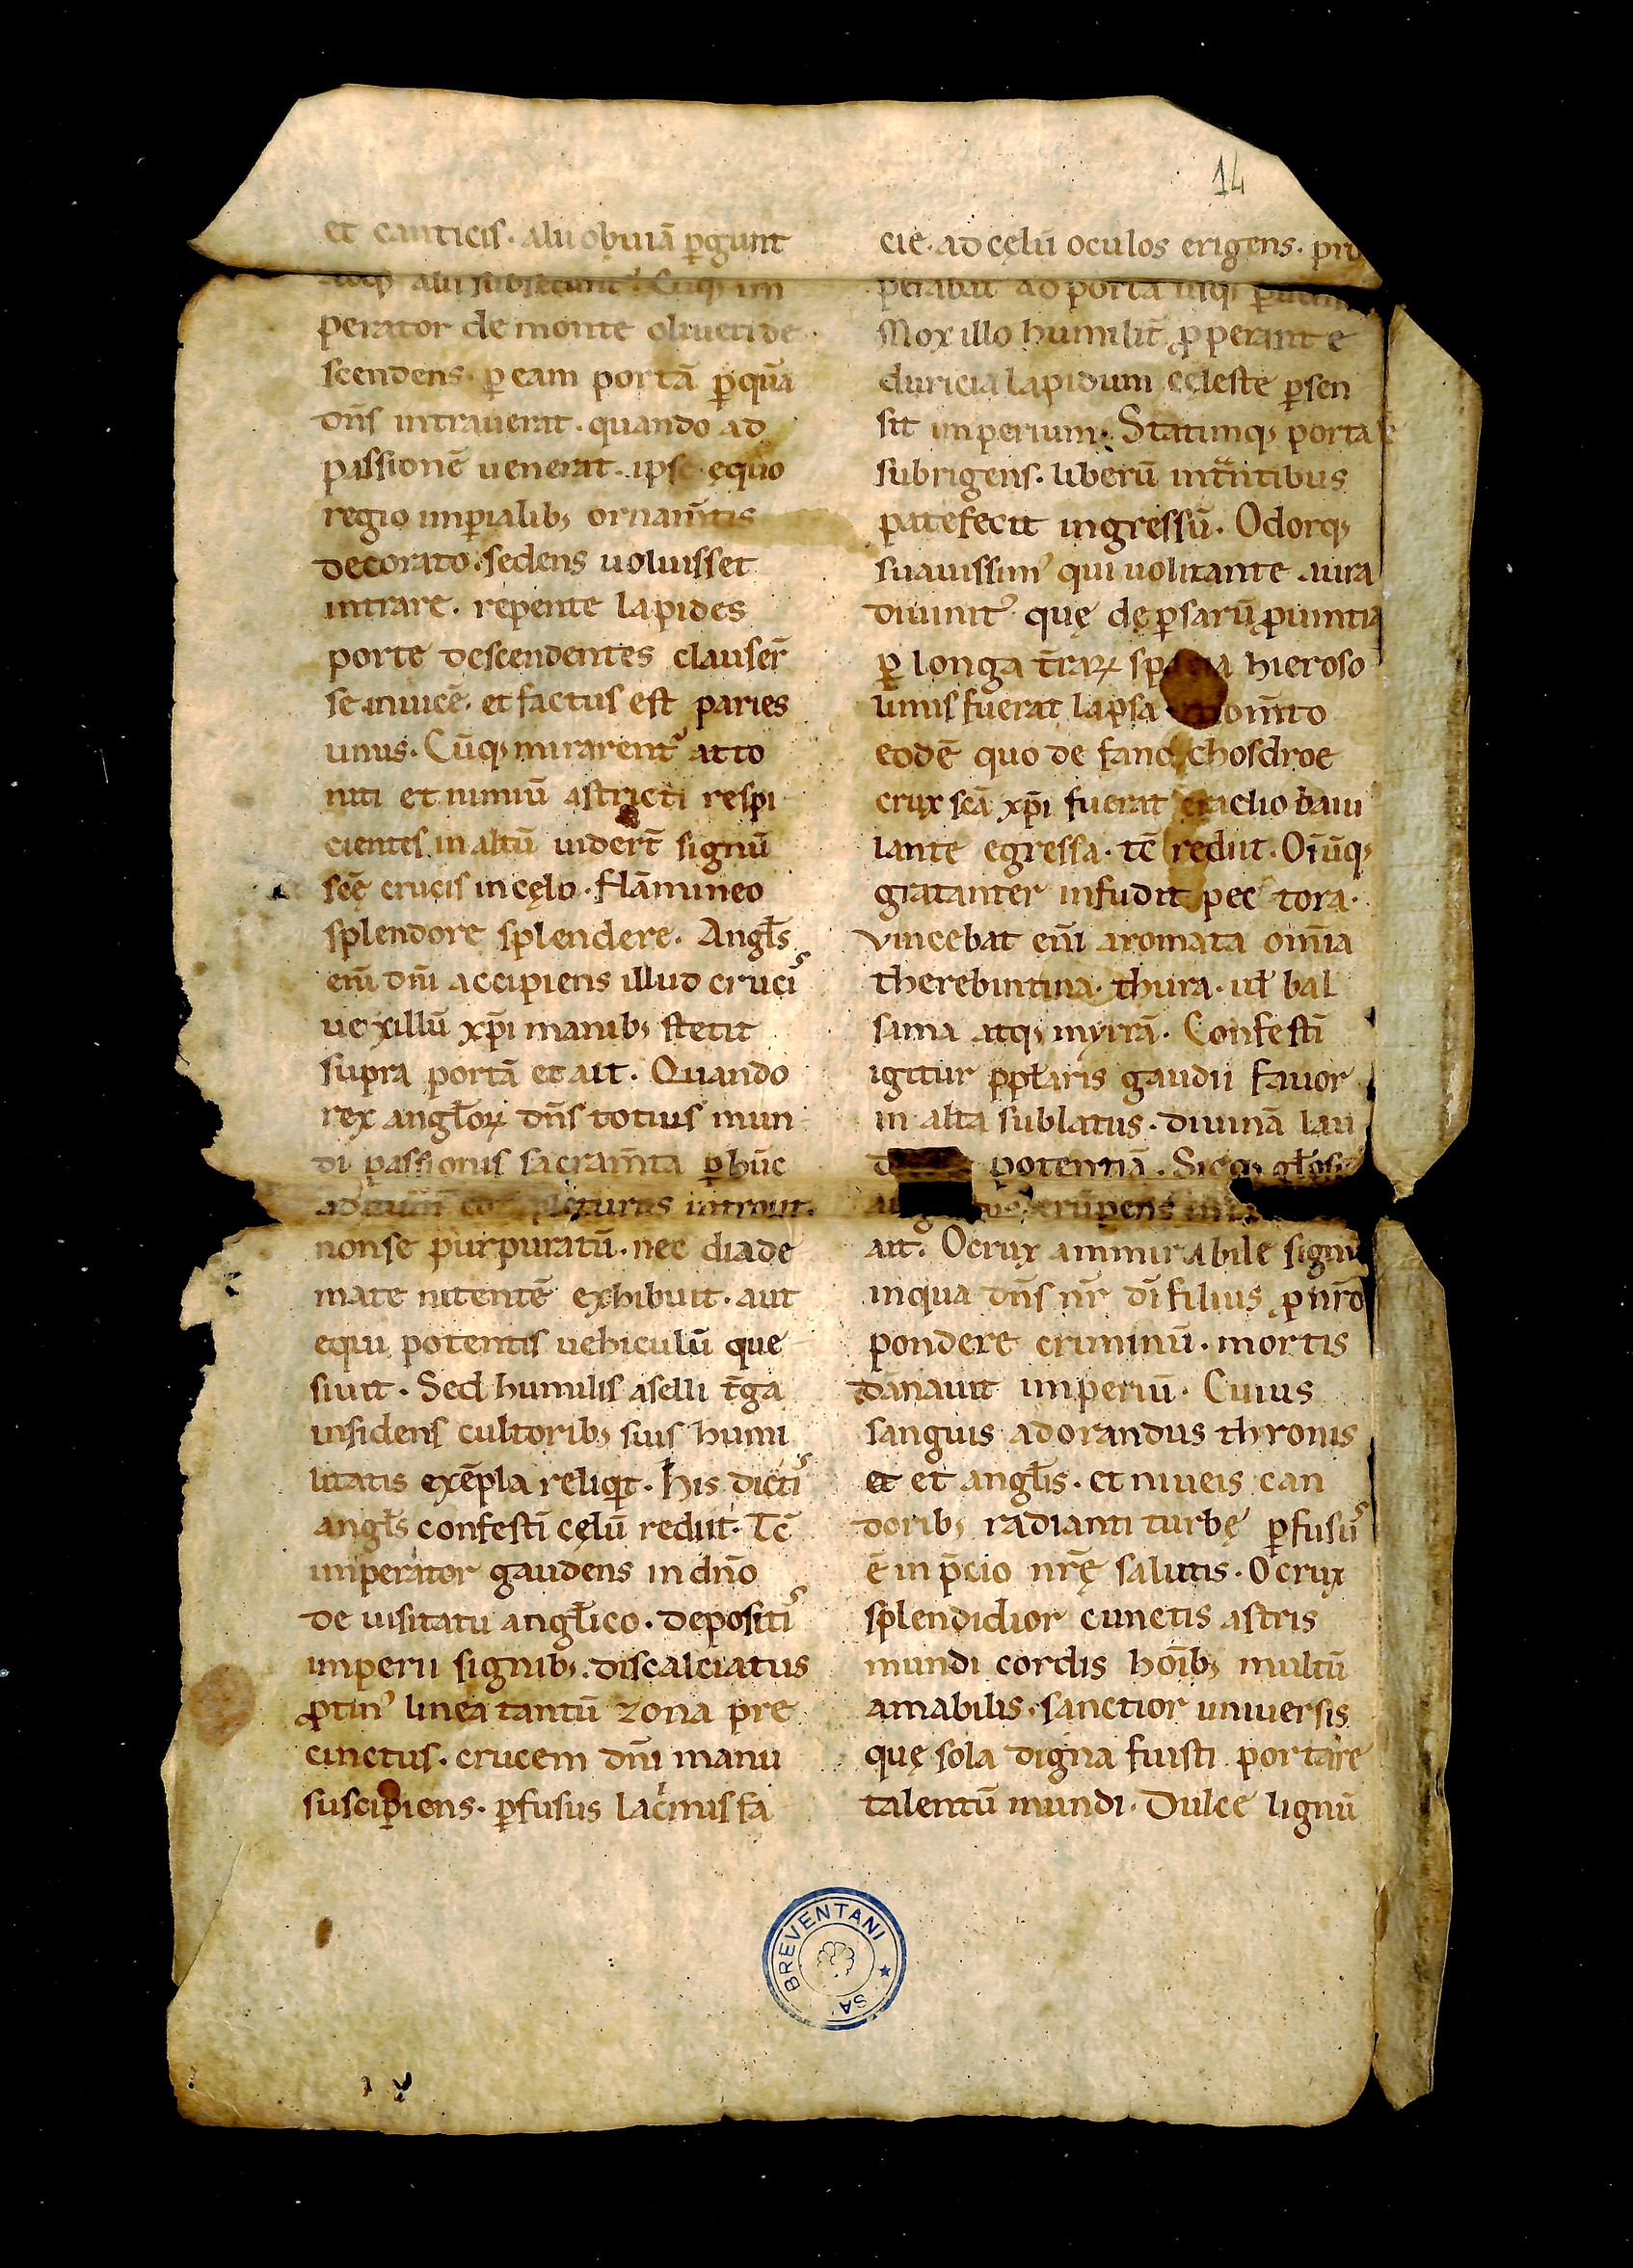 14
et canticis. alii obuiā ꝑgunt
atqꝫ alii subsecunt᷒. Cūqꝫ im
perator de monte oliueti de
scendens. ꝑ eam portā ꝑ quā
dn̄s intrauerat. quando ad
passionē uenerat. ipse equo
regio imꝑialibꝫ ornam̄tis
decorato. sedens uoluisset
intrare. repente lapides
porte descendentes clauser̄
se inuicē. et factus est paries
unus. Cūqꝫ mirarent᷒ atto
niti et nimiū astricti respi
cientes in altū uider̄t signū
scę̄ crucis in cęlo. flāmineo
splendore splendere. Angłs
enī dn̄i accipiens illud crucis
uexillū xp̄i manibꝫ stetit
supra portā et ait. Quando
rex angłoꝝ dn̄s totius mun
di passionis sacram̄ta ꝑ hūc
aditum completurus introiit.
non se purpuratū. nec diade
mate nitentē exhibuit. aut
equi potentis uehiculū que
siuit. Sed humilis aselli t̄ga
insidens cultoribꝫ suis humi
litatis exēpla reliqͥt. his dictis
angłs confestī cęlū rediit. Tc̄
imperator gaudens in dn̄o
de uisitatu angłico. depositis
imperii signibꝫ. discalciatus
ꝓtin᷒ linea tantū zona pre
cinctus. crucem dn̄i manu
suscipiens. ꝑfusus lac̄mis fa
cie. ad cęlū oculos erigens. pro
perabat ad portā usqꝫ
Mox illo humilit̄ ꝓperante
duricia lapidum cęleste ꝑsen
sit imperium. Statimqꝫ porta se
subrigens. liberū int̄ntibus
patefecit ingressū. Odorqꝫ
suauissim᷒ qui uolitante aura
diuinit᷒ quę de ꝑsarū ꝓuintia
ꝑ longa t̄raꝝ spatia hieroso
limis fuerat lapsa mom̄to
eodē quo de fano chosdroe
crux scā xp̄i fuerat eraclio baiu
lante egressa. tc̄ rediit. Oīūqꝫ
gratanter infudit pectora.
vincebat enī aromata omīa
therebintina. thura. uł bal
sama atqꝫ myrrā. Confestī
igitur ppłaris gaudii fauor
in alta sublatus. diuinā lau
potentiā. Sicqꝫ głosi
erūpens
ait. O crux ammirabile signū
in qua dn̄s nr̄ dī filius ꝓ nr̄o
pondere criminū. mortis
dānauit imperiū. Cuius
sanguis adorandus thronis
et et angłis. et niueis can
doribꝫ radianti turbę ꝑfusus
ē in p̄cio nr̄ę salutis. O crux
splendidior cunctis astris
mundi cordis hoi̅bꝫ multū
amabilis. sanctior uniuersis
quę sola digna fuisti portare
talentū mundi. Dulce lignū
BREVENTANI ★ SA